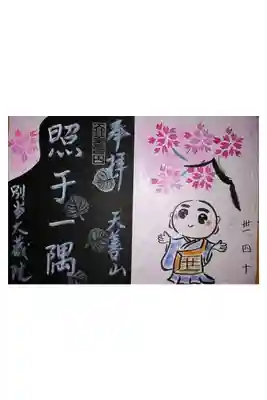 卅一 四 十
奉拝 天善山
照于一隅
別当大蔵院